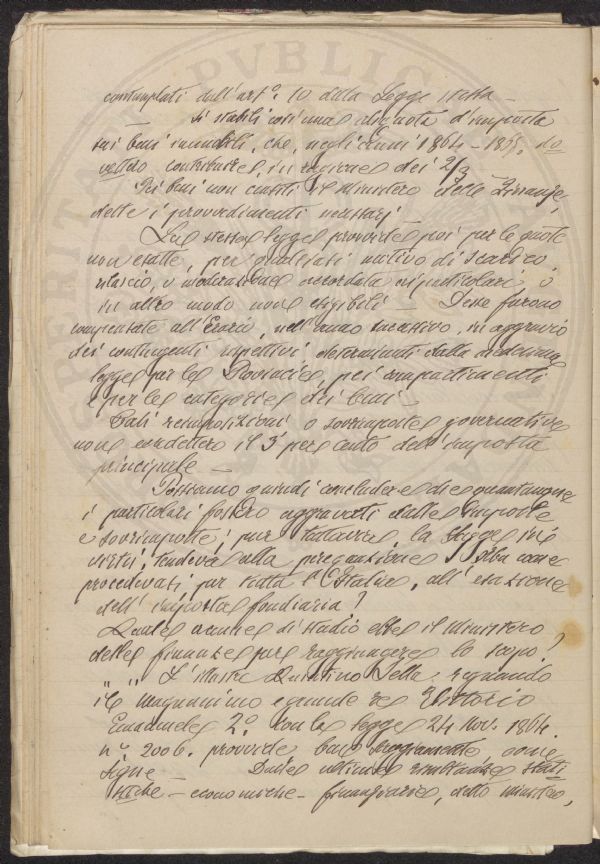 contemplati dall'art.° 10 della Legge stessa —
Si stabilì così una aliquota d'imposta
sui beni immobili, che, negli anni 1864-1865, do
vettero contribuire, in ragione dei 2/3
Pei beni non censiti il Ministero delle Finanze,
dette i provvedimenti necessarj
La stessa legge provvide poi per le quote
non esatte, per qualsiasi motivo di scarico,
rilascio, o moderazione accordata ai particolari, o
in altro modo non esigibili — Desse furono
compensate all'Erario, nell'anno successivo, in aggravio
dei contingenti rispettivi, determinati dalla medesima
legge per le Provincie, pei compartimenti
e per le categorie dei beni —
Tali reimposizioni o sovrimposte governative
non eccedettero il 3 per cento dell'imposta
principale —
Possiamo quindi concludere che quantunque
i particolari fossero aggravati dalle imposte
e sovrimposte, pur tuttavia, la legge in
virtù, tendeva alla perequazione
procedevasi, per tutta l'Italia, all'esazione
dell'imposta fondiaria?
Quale acume di studio ebbe il Ministero
delle finanze per raggiungere lo scopo?
" " L'illustre Quintino Sella, regnando
il magnanimo e grande re Vittorio
Emanuele 2.° con la legge 24 Nov. 1864.
n° 2006. provvide ben saggiamente come
segue — Dalle ultime risultanze stati
stiche — economiche — finanziarie, detto ministro,